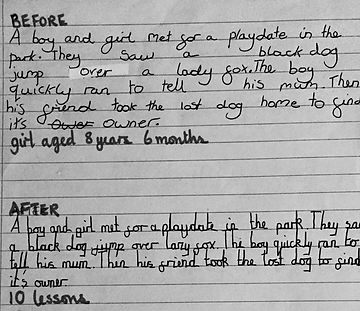 BEFORE
A boy and girl met for a playdate in the
park. They saw a black dog
jump over a lady fox. The boy
quickly ran to tell his mum. Then
his friend took the lost dog home to find
its Ower owner.
girl aged 8 years 6 months
AFTER
A boy and girl met for a playdate in the park. They sa
a black dog jump over lazy fox. The boy quickly ran to
tell his mum. Then his friend took the lost dog to find
it's owner.
10 lessons